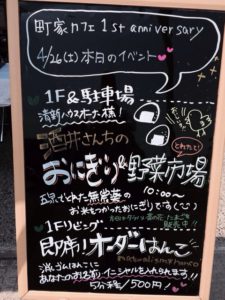 町家カフェ 1st anniversary
4/26(土)本日のイベント
1F&駐車場
酒井さんちの
とれたて!
おにぎり&野菜市場
五泉でとれた無農薬の 10:00〜
お米をつかったおにぎりです
1Fリビング
即席!オーダーはんこ
消しゴムはんこに
あなたのお名前イニシャルを入れられます!!
5分程/500円!